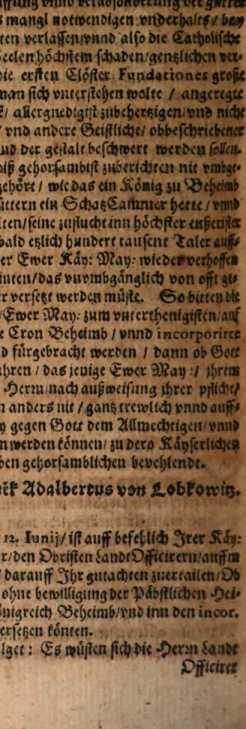 mangl notwendigen vnderhalts/
ten verlassen/vnnd also die Catholische
Seelen höchstem schaden/gentzlichen ver-
die ersten Clöster Fundationes große
man sich vnterstehen wolte / angeregte
/ allergnedigist zubehertzigen/vnd nicht
/ vnd andere Geistliche/ obbeschriebener
vnd der gestalt beschwert werden sollen.
gehorsambist zuberichten nit vmbge-
gehört / wie das ein König zu Beheimb
ein Schatz Cammer hette / vnnd
ten/seine zuflucht inn höchster eusserister
bald etzlich hundert tausent Taler auff-
er Ewer Käy: May: wieder verhoffen
das vnvmbgänglich von offt ge-
r versetzt werden müste. So bitten die
Ewer May: zum vnterthenigisten/auf
e Cron Beheimb / vnnd incorporirte
d fürgebracht werden / dann ob Gott
/ das jenige Ewer May :/ ihrem
Herrn/nach außweisung ihrer pflicht/
n anders nit / gantz trewlich vnnd auff-
y gegen Gott dem Allmechtigen/vnnd
n werden können/ zu dero Käyserlichen
ben gehorsamblichen bevehlende.
Adalbertus von Lobkowitz.
12. Iunij/ ist auff befehlich Irer Käy:
r/den Obristen Landt Officirern/auff
/ darauff Ihr gutachten zuertailen/Ob
ohne bewilligung der Päbstlichen Hei-
Königreich Beheimb/vnd inn den incor.
ersetzen könten.
lget : Es wüsten sich die Herrn Landt
Officirer